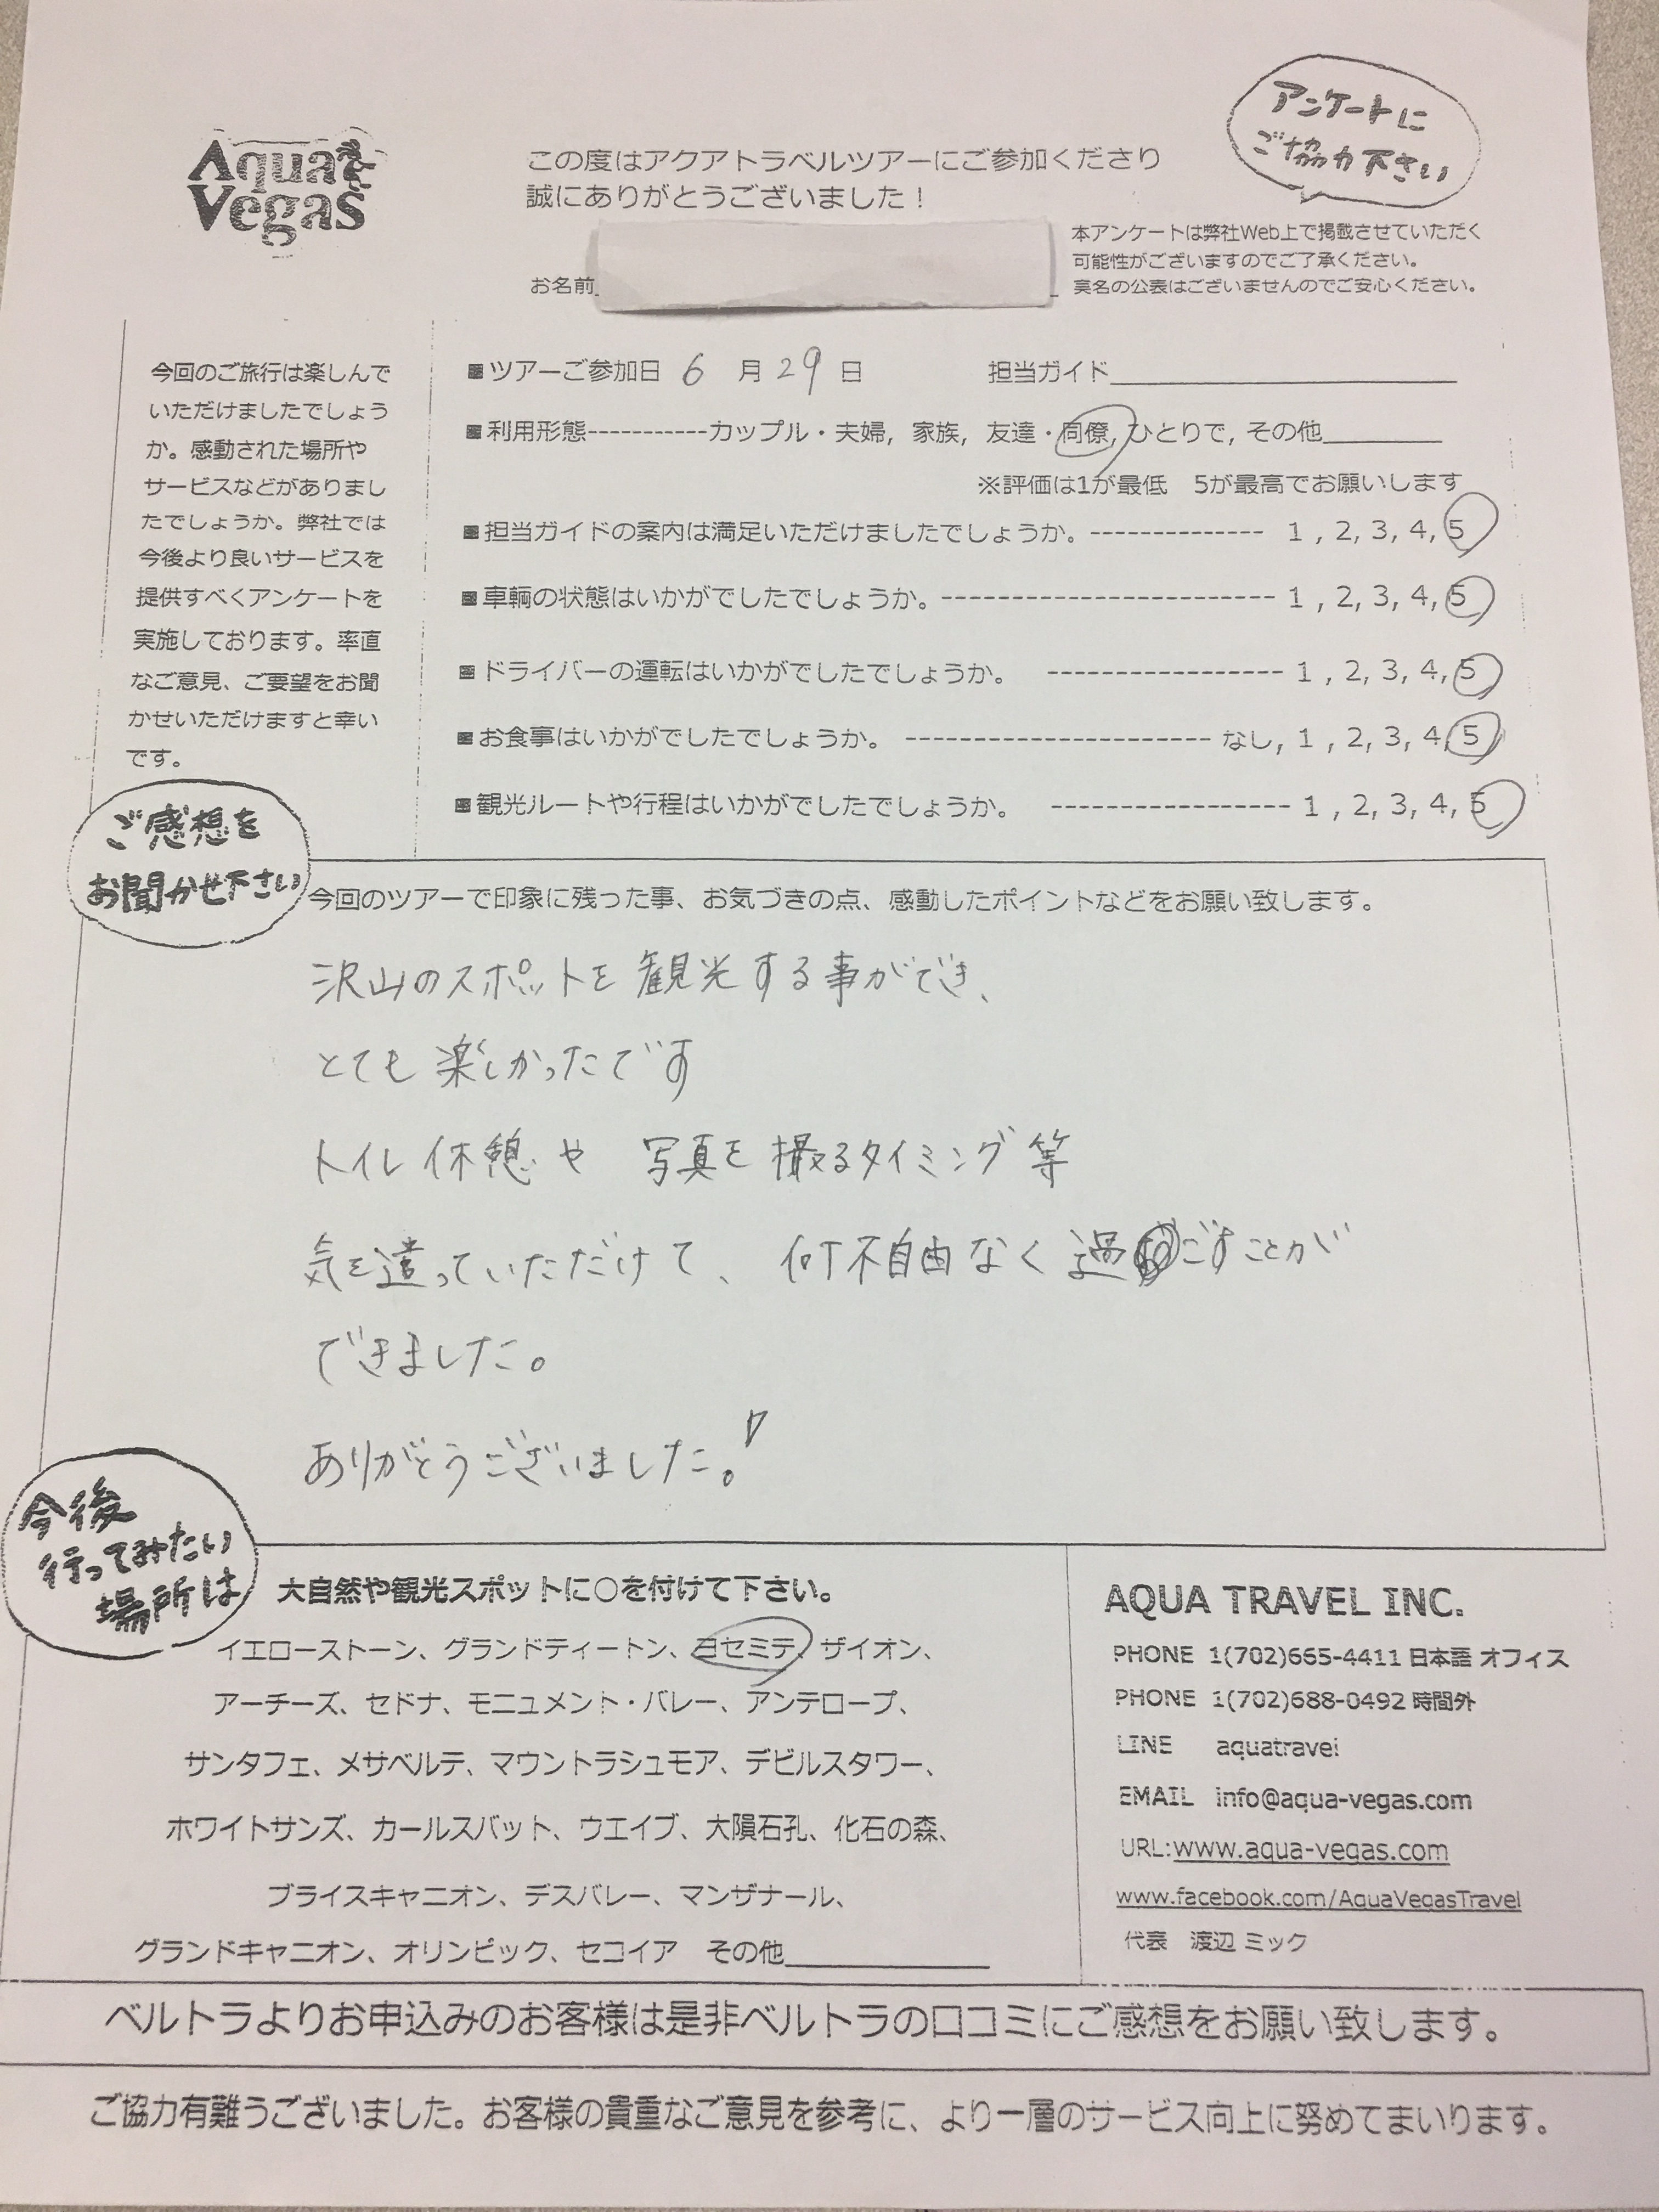 Aqua
Vegas
この度はアクアトラベルツアーにご参加くださり
誠にありがとうございました!
アンケートに
ご協力下さい
本アンケートは弊社Web上で掲載させていただく
可能性がございますのでご了承ください。
実名の公表はございませんのでご安心ください。
お名前
今回のご旅行は楽しんで
いただけましたでしょう
か。感動された場所や
サービスなどがありまし
たでしょうか。弊社では
今後より良いサービスを
提供すべくアンケートを
実施しております。率直
なご意見、ご要望をお聞
かせいただけますと幸い
です。
■ツアーご参加日 6 月 29 日 担当ガイド
■利用形態-----------カップル・夫婦, 家族, 友達・同僚, ひとりで, その他
※評価は1が最低 5が最高でお願いします
■担当ガイドの案内は満足いただけましたでしょうか。------------- 1 , 2, 3, 4, 5
■車輌の状態はいかがでしたでしょうか。------------------------- 1 , 2, 3, 4, 5
■ドライバーの運転はいかがでしたでしょうか。 ----------------- 1 , 2, 3, 4, 5
■お食事はいかがでしたでしょうか。 ---------------------- なし, 1 , 2, 3, 4, 5
■観光ルートや行程はいかがでしたでしょうか。 ----------------- 1 , 2, 3, 4, 5
ご感想を
お聞かせ下さい
今回のツアーで印象に残った事、お気づきの点、感動したポイントなどをお願い致します。
沢山のスポットを観光する事ができ、
とても楽しかったです
トイレ休憩や 写真を撮るタイミング等
気を遣っていただけて、何不自由なく過ごすことが
できました。
ありがとうございました。
今後
行ってみたい
場所は
大自然や観光スポットに○を付けて下さい。
イエローストーン、グランドティートン、ヨセミテ、ザイオン、
アーチーズ、セドナ、モニュメント・バレー、アンテロープ、
サンタフェ、メサベルテ、マウントラシュモア、デビルスタワー、
ホワイトサンズ、カールスバット、ウエイブ、大隕石孔、化石の森、
ブライスキャニオン、デスバレー、マンザナール、
グランドキャニオン、オリンピック、セコイア その他
AQUA TRAVEL INC.
PHONE 1(702)665-4411 日本語 オフィス
PHONE 1(702)688-0492 時間外
LINE aquatravel
EMAIL info@aqua-vegas.com
URL:www.aqua-vegas.com
www.facebook.com/AquaVegasTravel
代表 渡辺 ミック
ベルトラよりお申込みのお客様は是非ベルトラの口コミにご感想をお願い致します。
ご協力有難うございました。お客様の貴重なご意見を参考に、より一層のサービス向上に努めてまいります。